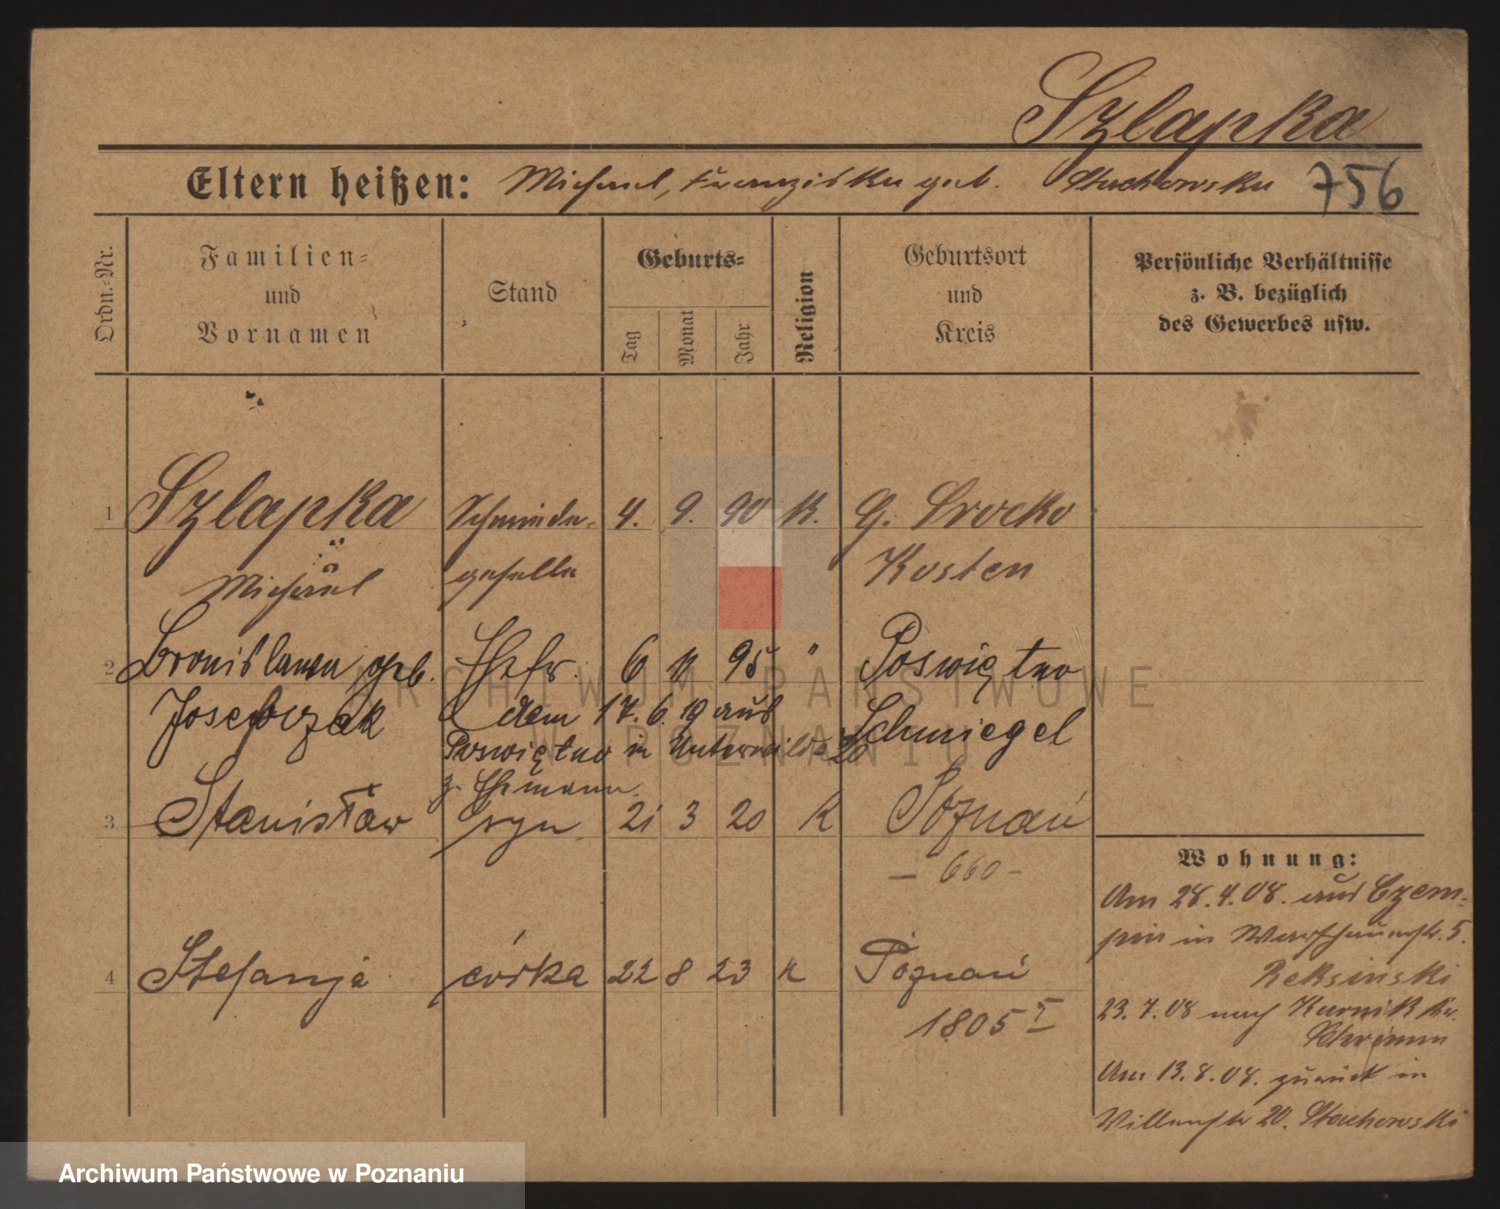 Szlapka
Eltern heißen: Michael, Franziska geb. Stachowska 756
Ordn.-Nr.
Familien-
und
Vornamen
Stand
Geburts-
Tag
Monat
Jahr
Religion
Geburtsort
und
Kreis
Persönliche Verhältnisse
z. B. bezüglich
des Gewerbes usw.
1 Szlapka Schmiede- 4. 9. 90 K. G. Srocko
Michael geselle Kosten
2 Bronislawa geb. Ehefr. 6 11 95 " Poswiętno
Josefczak dem 17.6.19 aus Schmiegel
Poswiętno in Unterwilda 20
z. Ehemann
3 Stanisław syn 21 3 20 K Poznań
- 660 -
4 Stefanja córka 22 8 23 K Poznań
1805 I
Wohnung:
Am 28.4.08. aus Czem-
pin in 5.
Reksinski
23.7.08 nach Kurnik Kr.
Schrimm
Am 13.8.08. zurück in
20. Stachowski
ARCHIWUM PAŃSTWOWE
W POZNANIU
Archiwum Państwowe w Poznaniu